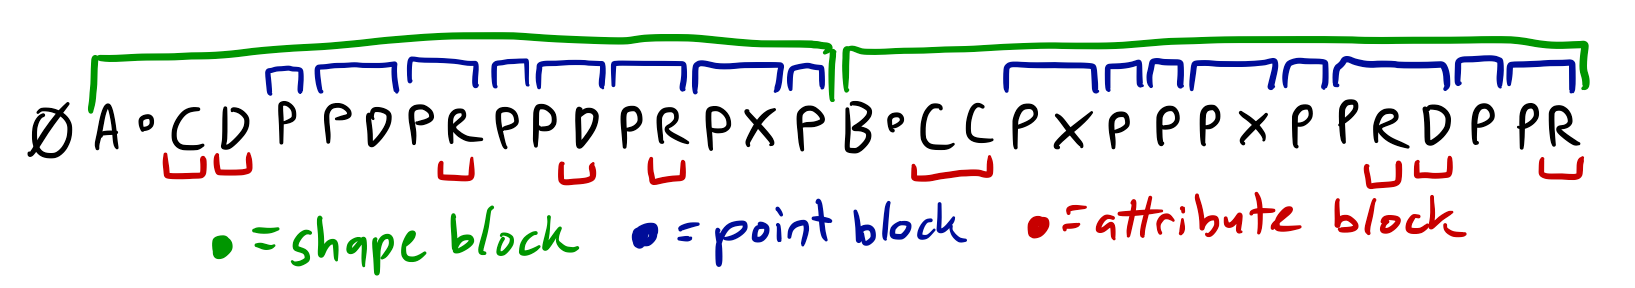 Ø A ∘ C D P P D P R P P D P R P X P B ∘ C C P X P P P X P P R D P P R
● = shape block ● = point block ● = attribute block